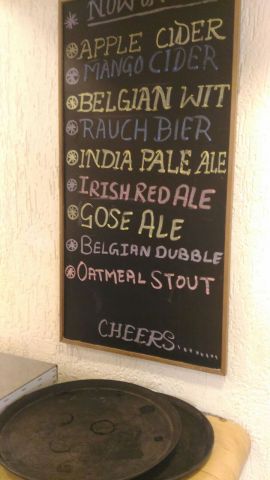 NOW
APPLE CIDER
MANGO CIDER
BELGIAN WIT
RAUCH BIER
INDIA PALE ALE
IRISH RED ALE
GOSE ALE
BELGIAN DUBBLE
OATMEAL STOUT
CHEERS........